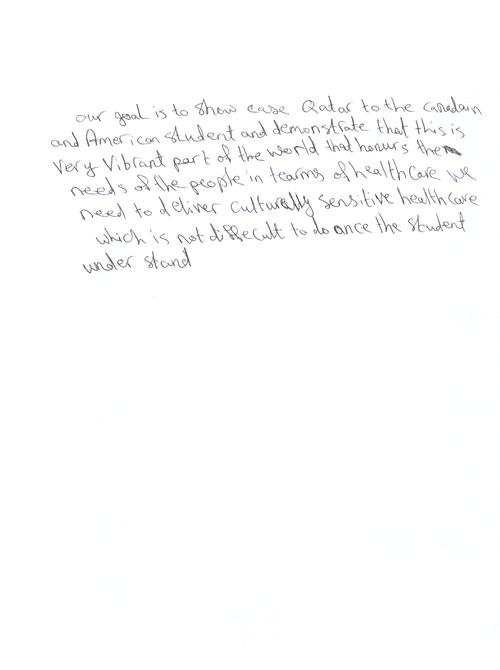 our goal is to show case Qatar to the canadain
and American student and demonstrate that this is
very vibrant part of the world that honurs the
needs of the people in tearms of health care we
need to deliver culturally sensitive health care
which is not diffecult to do once the student
under stand